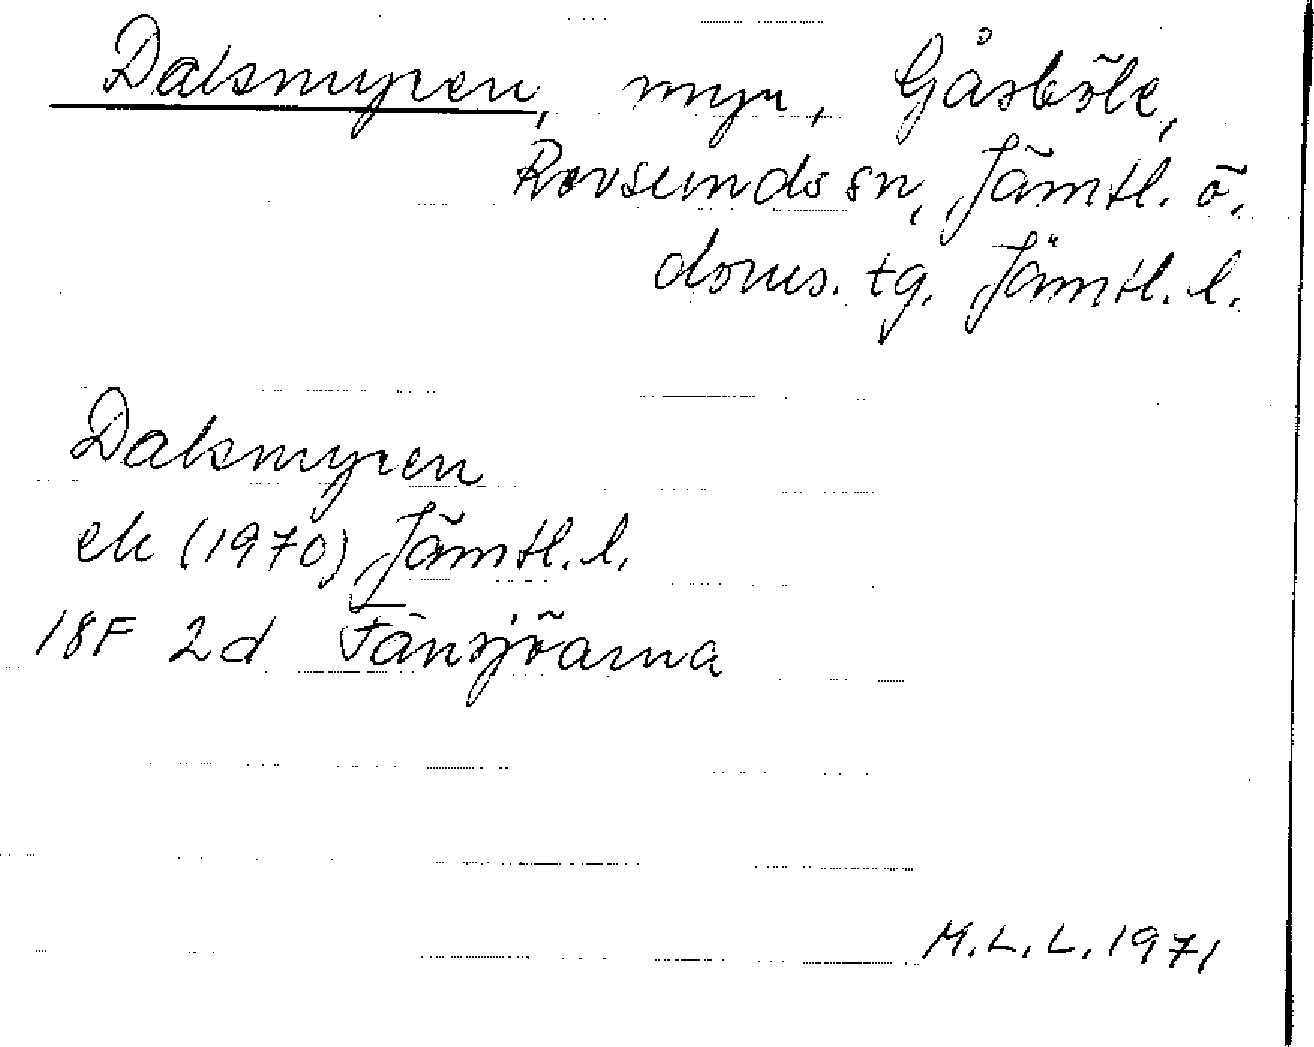 Dalsmyren, myr, Gåsböle,
Revsunds sn, Jämtl. ö.
doms. tg. Jämtl. l.
Dalsmyren
ek (1970) Jämtl. l.
18F 2d Fånsjöarna
M.L.L. 1971